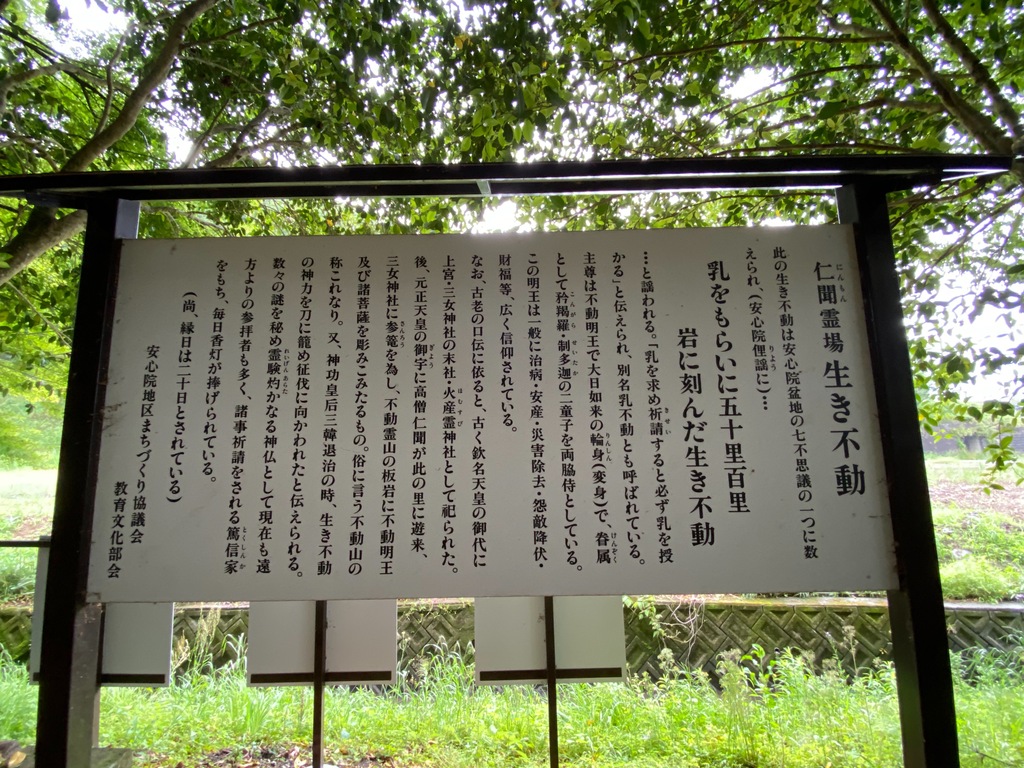 仁聞霊場 生き不動
にんもん
此の生き不動は安心院盆地の七不思議の一つに数
えられ、(安心院俚謡に…
りよう
乳をもらいに五十里百里
岩に刻んだ生き不動
…と謡われる。「乳を求め祈請すると必ず乳を授
きせい
かる」と伝えられ、別名乳不動とも呼ばれている。
主尊は不動明王で大日如来の輪身(変身)で、眷属
りんしん
けんぞく
として矜羯羅・制多迦の二童子を両脇侍としている。
こんがら
せいたか
この明王は一般に治病・安産・災害除去・怨敵降伏・
財福等、広く信仰されている。
なお、古老の口伝に依ると、古く欽名天皇の御代に
上宮・三女神社の末社・火産霊神社として祀られた。
ほむすび
後、元正天皇の御宇に高僧仁聞が此の里に遊来、
ぎょう
三女神社に参篭を為し、不動霊山の板岩に不動明王
さんろう
及び諸菩薩を彫みこみたるもの。俗に言う不動山の
称これなり。又、神功皇后三韓退治の時、生き不動
の神力を刀に籠め征伐に向かわれたと伝えられる。
数々の謎を秘め霊験灼かなる神仏として現在も遠
れいげんあらた
方よりの参拝者も多く、諸事祈請をされる篤信家
とくしんか
をもち、毎日香灯が捧げられている。
(尚、縁日は二十日とされている)
安心院地区まちづくり協議会
教育文化部会